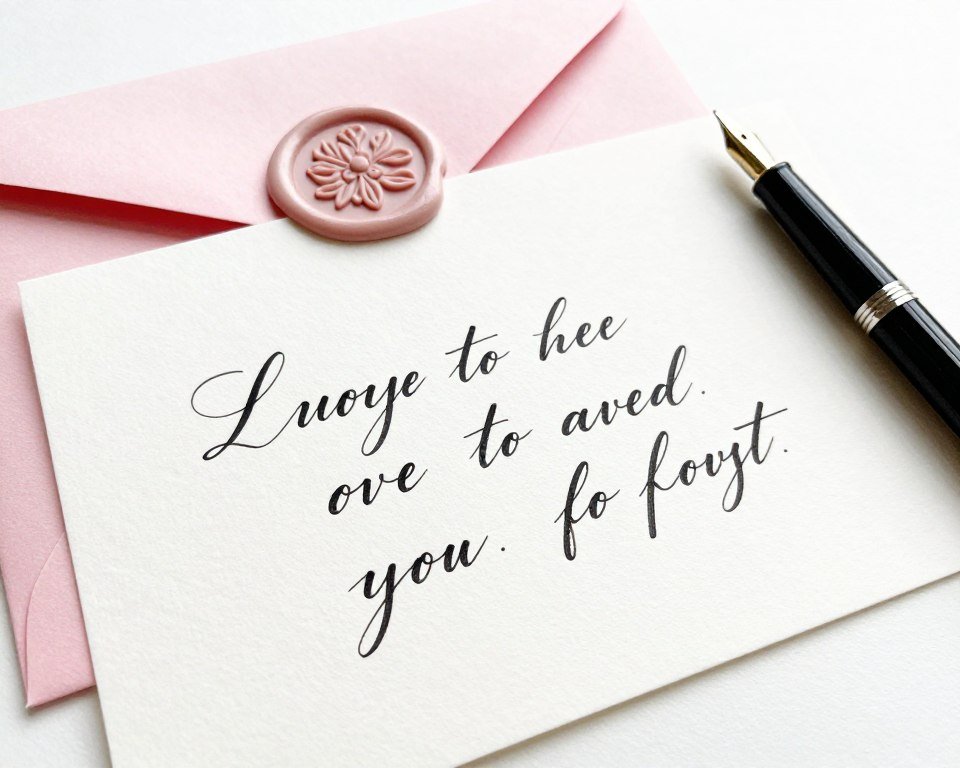 Luoye to hee
ove to aved.
you. fo fovst.